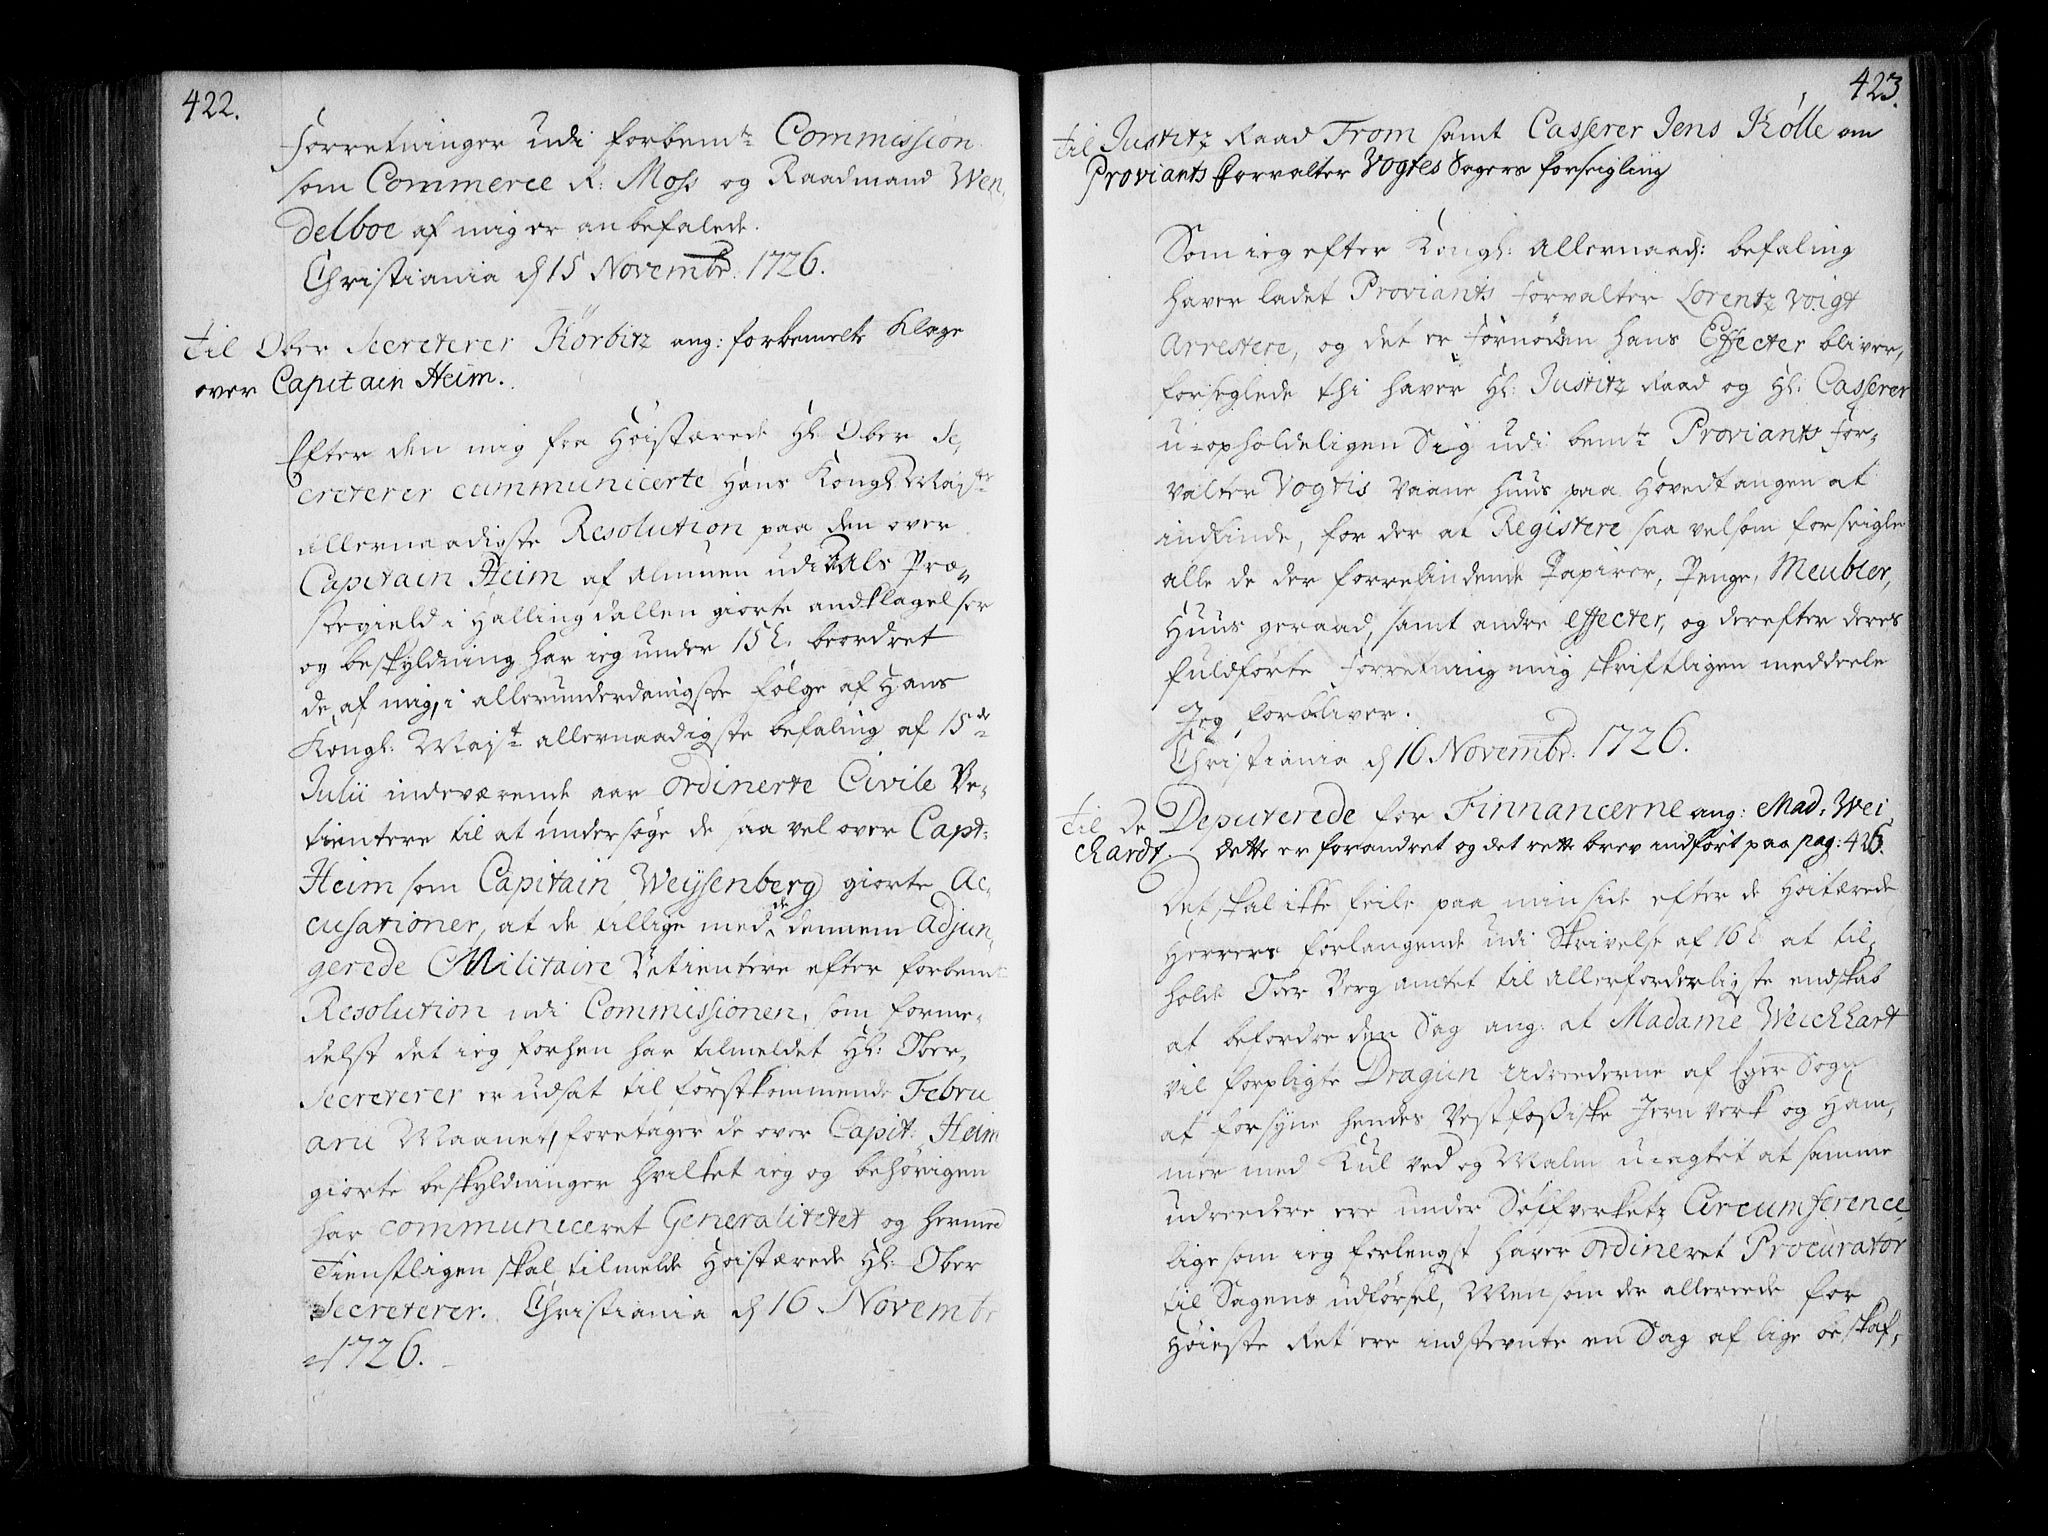 422.
Forretninger udi forbemte Commission
som Commerce R: Moss og Raadmand Wen,
delboe af mig er anbefalede.
Christiania d 15 Novembr. 1726.
til Ober Secreterer Körbitz ang: forbemelte Klage
over Capitain Heim.
Efter den mig fra Höistærede Hl Ober Se,
creterer cummunicerte Hans Kongl Majts
allernaadigste Resolution paa den over
Capitain Heim af Almuen udi Aals Præ,
stegield i Hallingdallen giorte andklagelser
og beskyldning har ieg under 15 beordret
de af mig, i allerunderdanigste fölge af Hans
Kongl: Majts allernaadigste befaling af 15de
Julii indeværende aar ordinerte Civile Be,
tientere til at undersöge de saa vel over Capt:
Heim som Capitain Weijsenberg giorte Ac,
cusationer, at de tillige med de dennem adjun,
gerede Militaire Betientere efter forbemte
Resolution udi Commissionen, som forme,
delst det ieg forhen har tilmeldet Hl: Ober,
Secreterer er udsat til förstkommende Febru
arii Maanet, foretager de over Capit. Heim
giorte beskyldninger hvilket ieg og behörigen
har communiceret Generalitetet og hermed
Tienstligen skal tilmelde Höistærede Hl: Ober
Secreterer. Christiania d 16 Novembr
1726.
423.
til Justitz Raad From samt Casserer Jens Kölle om
Proviants Forvalter Vogtes Sagers forseigling
Som ieg efter Kongl: Allernaad: befaling
haver ladet Proviants Forvalter Lorentz Voigt
Arrestere, og det er Fornöden hans Effecter bliver,
forseglede thi haver Hl: Justitz Raad og Hl: Casserer
u-opholdeligen Sig udi bemte Proviants For,
valter Vogtis vaane Huus paa Hovedtangen at
indfinde, for der at Registere saa velsom forseigle
alle de der forrefindende Papirer, Penge, Meubler,
Huus geraad, samt andre effecter, og derefter deres
fuldförte Forretning mig skriftligen meddeele
Jeg forbliver.
Christiania d 16 Novembr. 1726.
til De Deputerede for Finnancerne ang: Mad. Wei,
chardt. Dette er forandret og det rette brev indfört paa pag: 426.
Det skal ikke feile paa min side efter de Höitærede
Herrers forlangende udi Skrivelse af 16 at til,
holde Ober Berg amtet til allerforderligste endskab
at befordre den Sag ang: at Madame Weichhart
vil forpligte Dragun udrederne af Eger Sogn
at forsyne hendes Vestfossiske Jern verk og Ham,
mer med Kul ved og Malm uragtet at samme
udreedere ere under Sölfverketz Circumference
lige som ieg forlengst haver ordineret Procurator
til Sagens udförsel, Men som der allerede for
Höieste Ret ere indstevnte en Sag af lige beskaf,